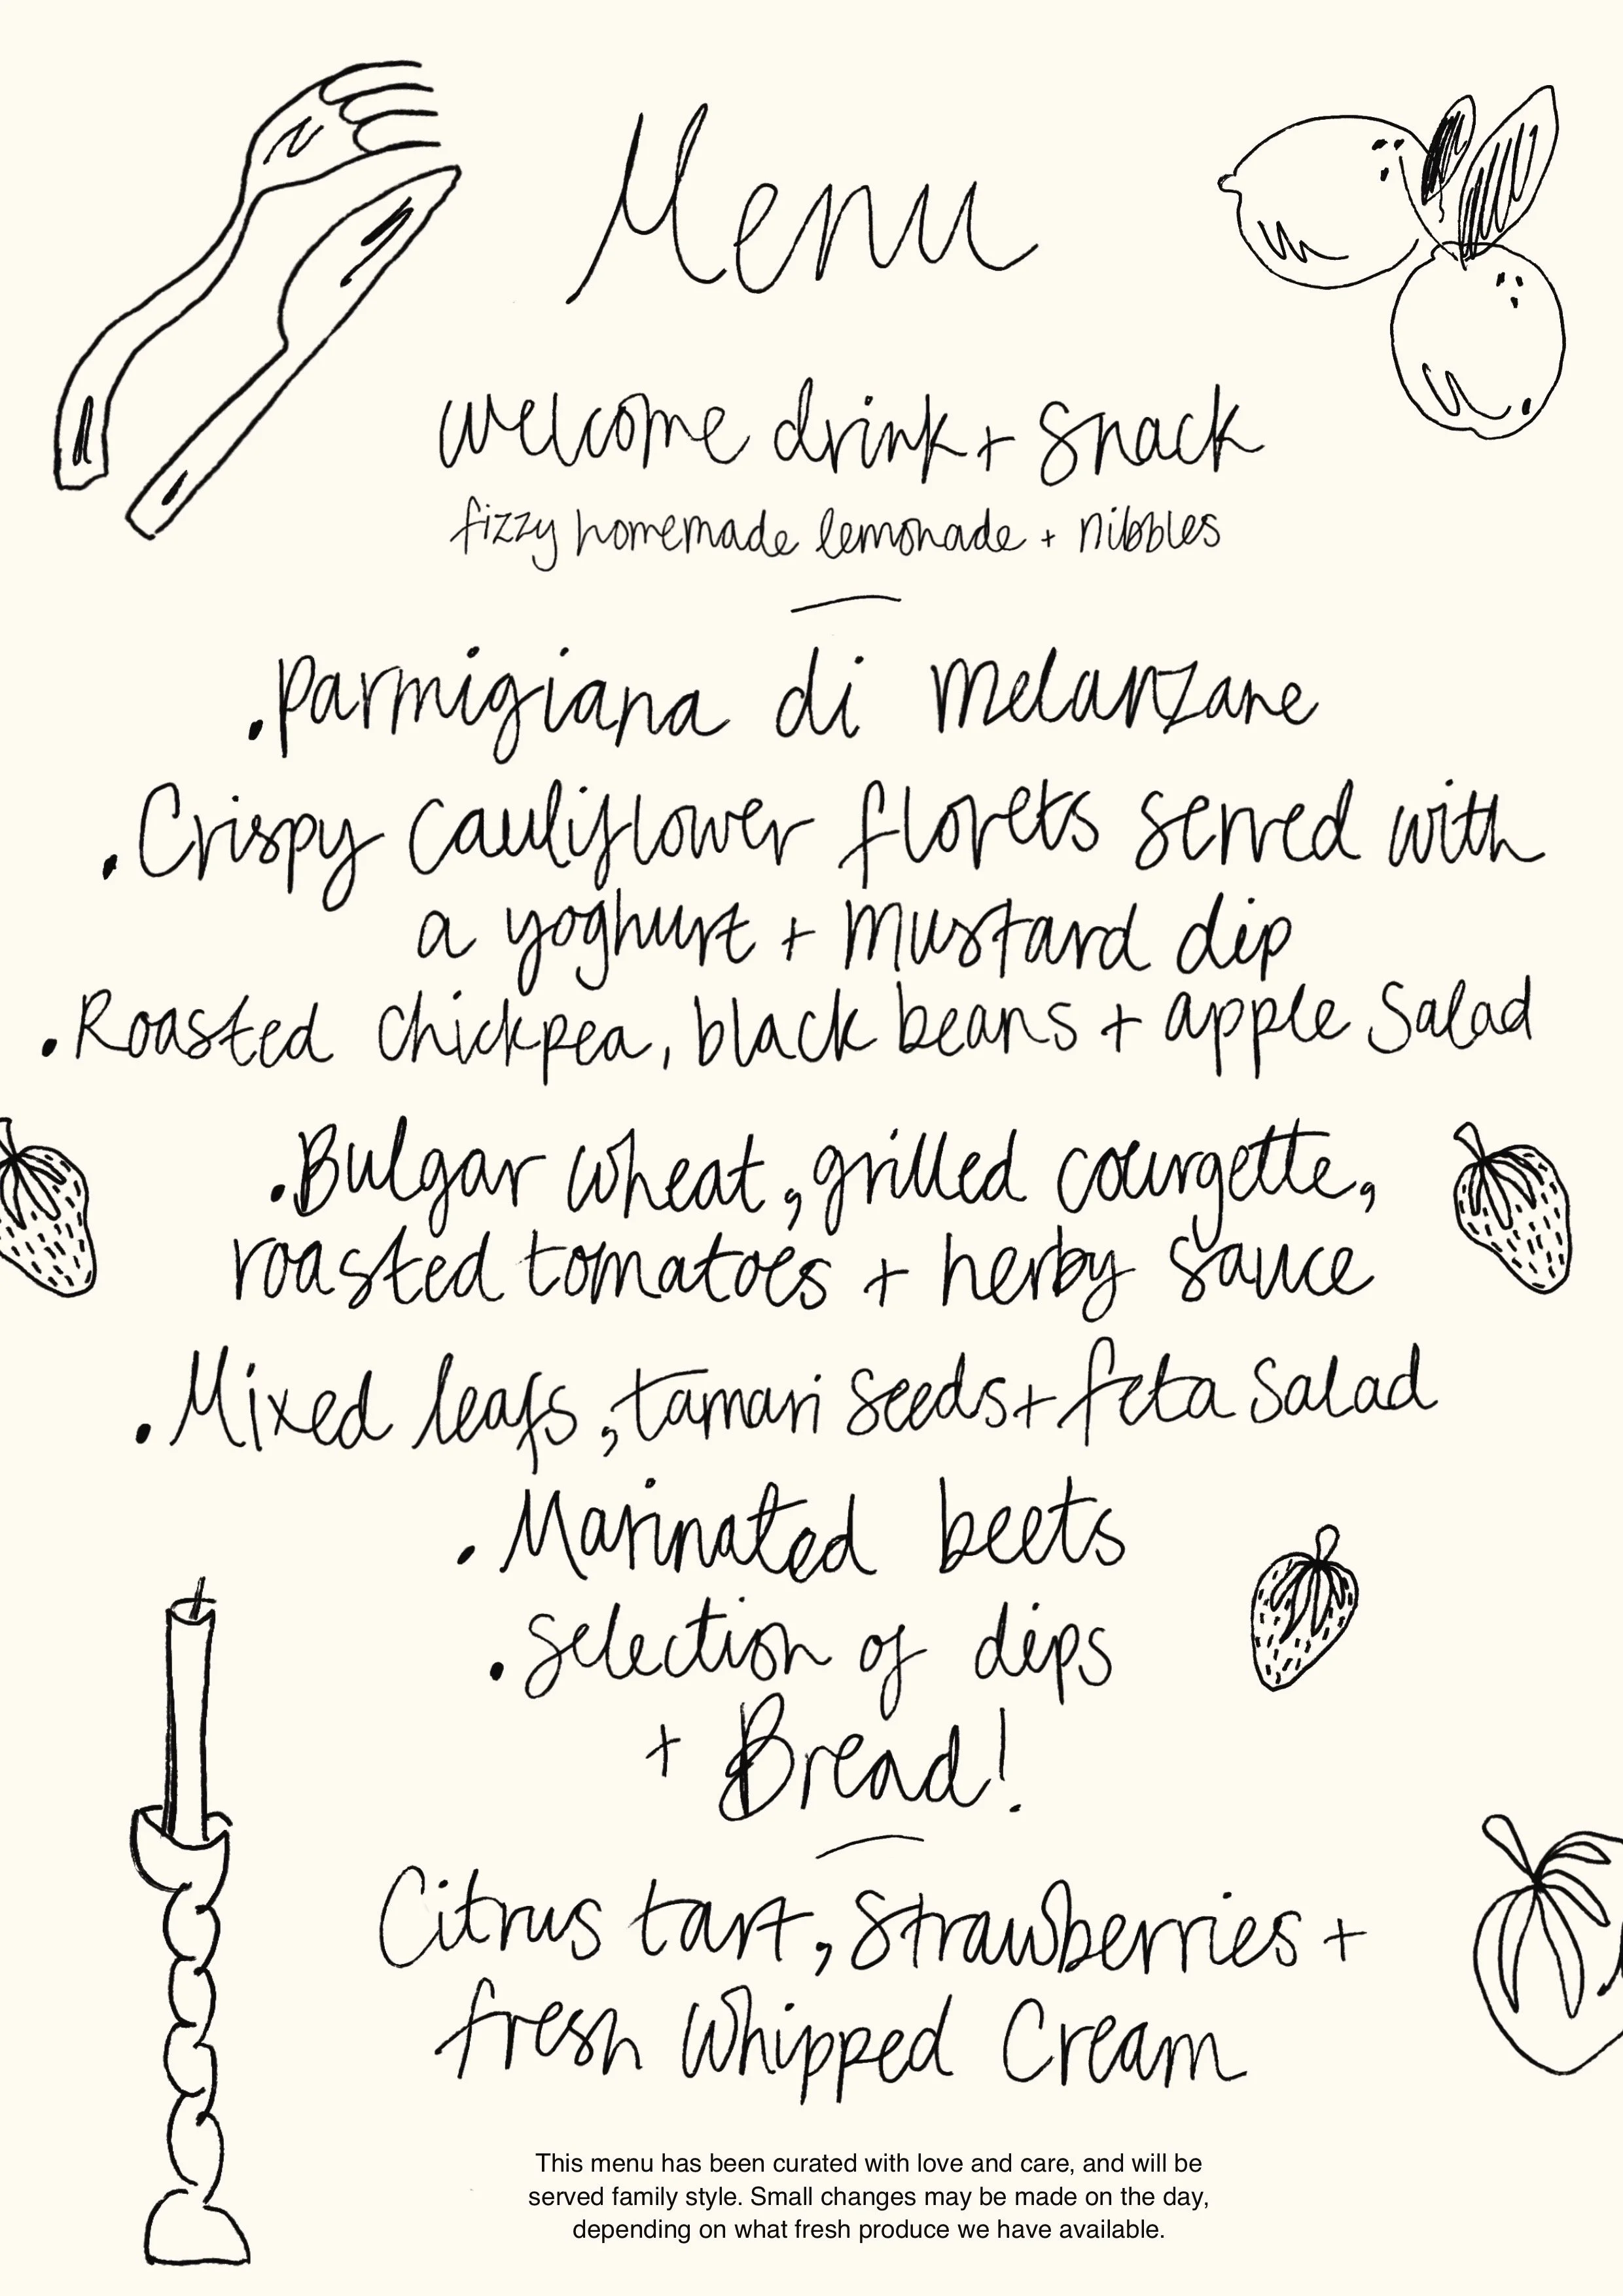 Menu
welcome drink + snack
fizzy homemade lemonade + nibbles
. parmigiana di melanzane
. Crispy cauliflower florets served with
a yoghurt + mustard dip
. Roasted chickpea, black beans + apple salad
. Bulgar wheat, grilled courgette,
roasted tomatoes + herby sauce
. Mixed leafs, tamari seeds + feta salad
. Marinated beets
. selection of dips
+ Bread!
Citrus tart, strawberries +
fresh whipped cream
This menu has been curated with love and care, and will be
served family style. Small changes may be made on the day,
depending on what fresh produce we have available.